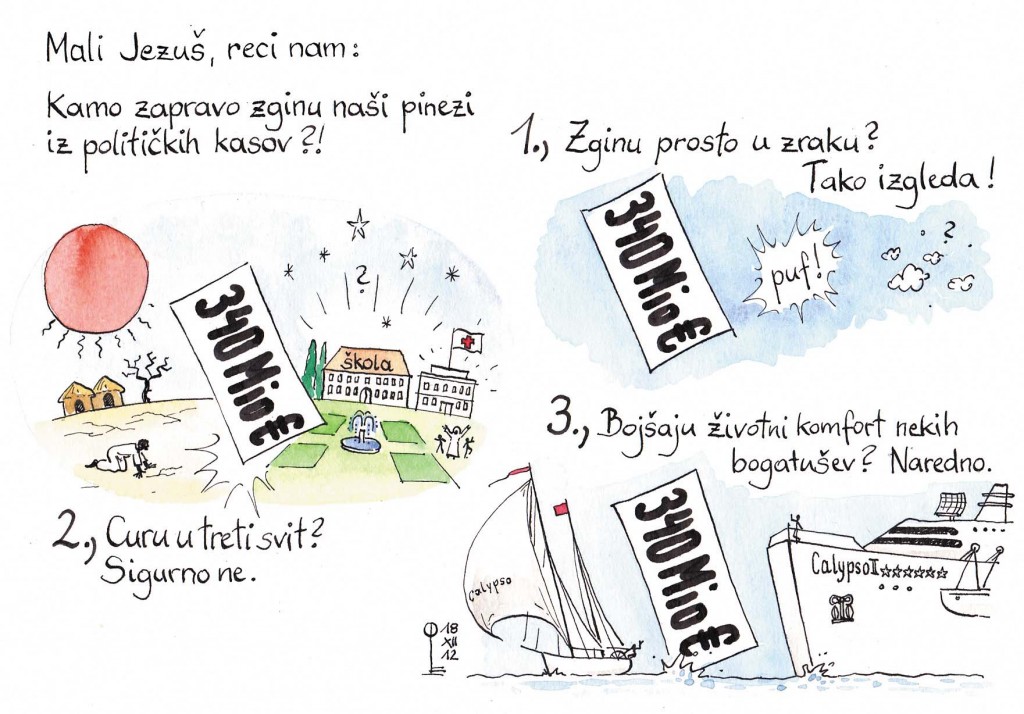 Mali Jezuš, reci nam:
Kamo zapravo zginu naši pinezi
iz političkih kasov?!
1., Zginu prosto u zraku?
Tako izgleda!
340 Mio €
puf!
?
2., Curu u treti svit?
Sigurno ne.
340 Mio €
?
škola
3., Bojšaju životni komfort nekih
bogatušev? Naredno.
Calypso
340 Mio €
Calypso II ☆☆☆☆☆☆
18
XII
12